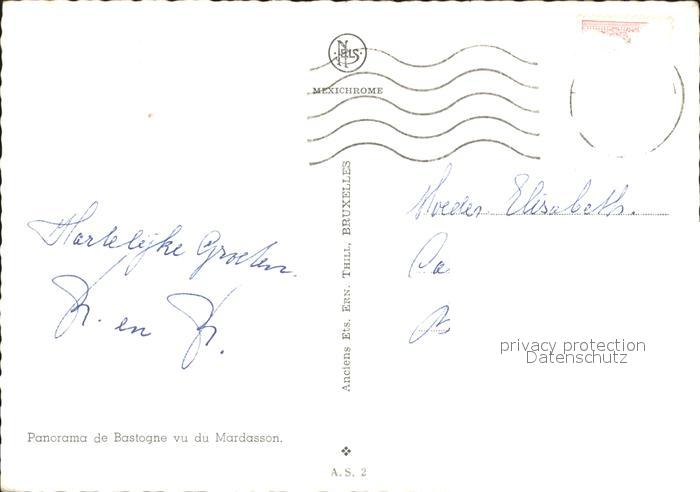 Nels
MEXICHROME
Hartelijke Groeten.
en
Moeder Elisabeth.
privacy protection
Datenschutz
Anciens Ets. Ern. Thill, BRUXELLES
Panorama de Bastogne vu du Mardasson.
A.S. 2